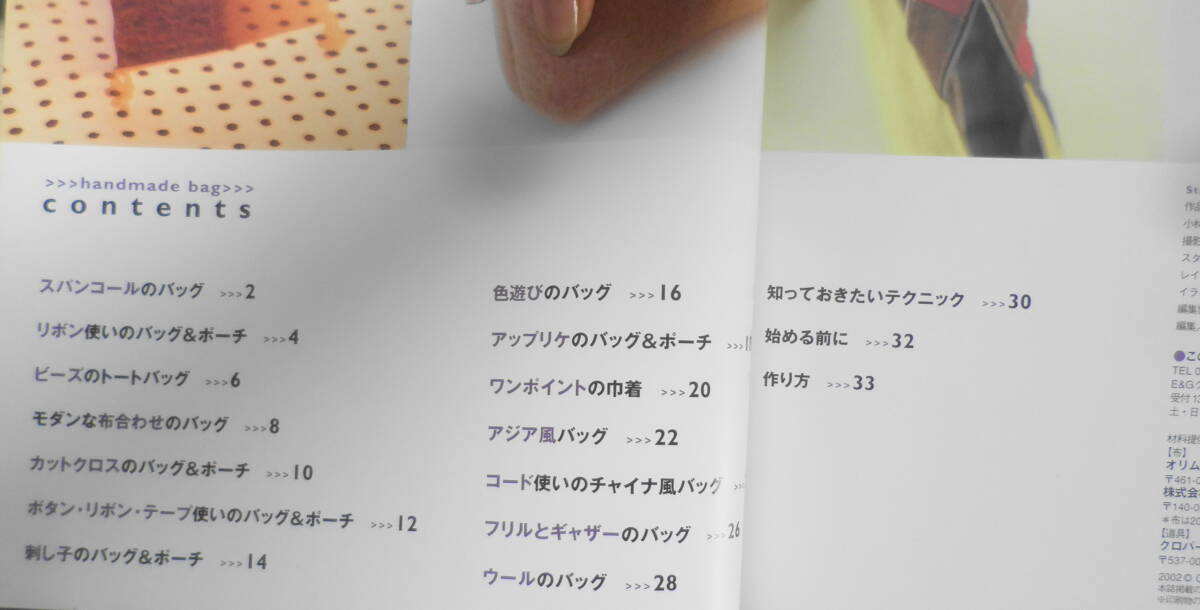 >>>handmade bag>>>
contents
スパンコールのバッグ >>>2
リボン使いのバッグ&ポーチ >>>4
ビーズのトートバッグ >>>6
モダンな布合わせのバッグ >>>8
カットクロスのバッグ&ポーチ >>>10
ボタン・リボン・テープ使いのバッグ&ポーチ >>>12
刺し子のバッグ&ポーチ >>>14
色遊びのバッグ >>>16
アップリケのバッグ&ポーチ >>>
ワンポイントの巾着 >>>20
アジア風バッグ >>>22
コード使いのチャイナ風バッグ
フリルとギャザーのバッグ >>>26
ウールのバッグ >>>28
知っておきたいテクニック >>>30
始める前に >>>32
作り方 >>>33
St
作品
小林
撮影
スタ
レイ
イラ
編集
編集
●この
TEL 0
E&G
受付13
土・日
材料提供
【布】
オリム
〒461-0
株式会
〒140-00
*布は20
【道具】
クロバー
〒537-00
2002
本誌掲載の
※印刷物の